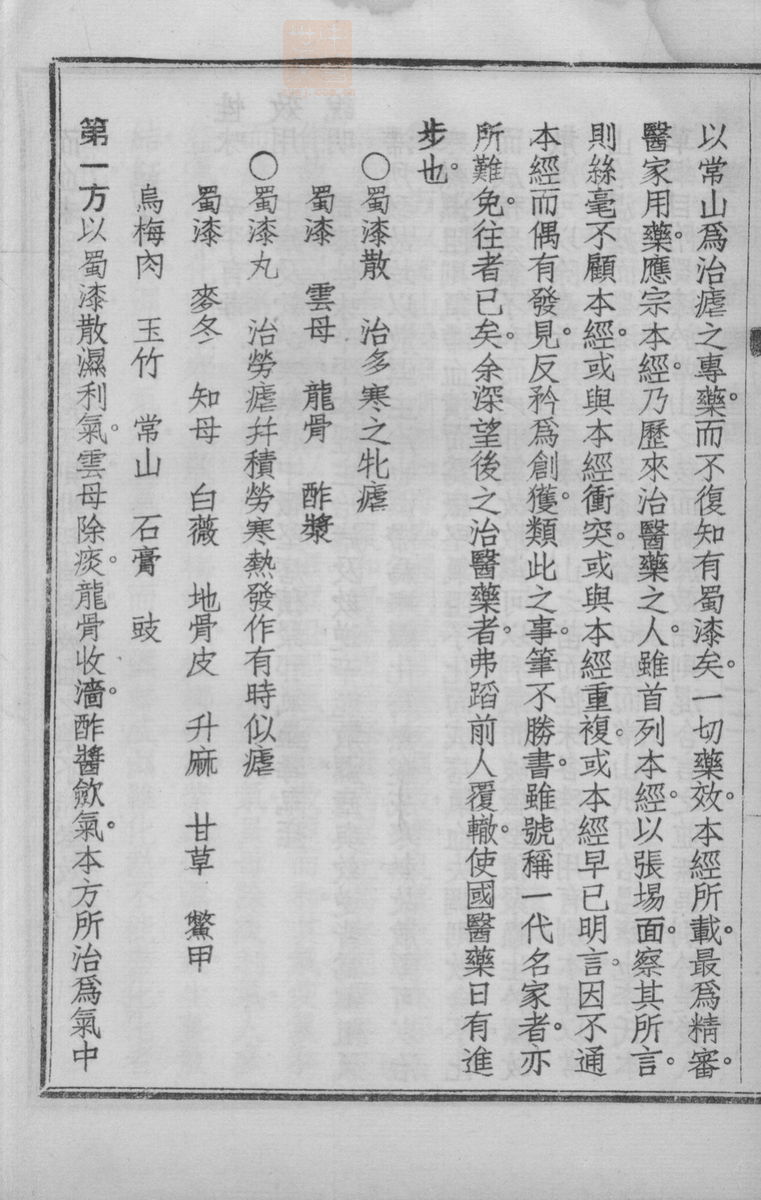 以常山爲治瘧之專藥。而不復知有蜀漆矣。一切藥效。本經所載。最爲精審。
醫家用藥。應宗本經。乃歷來治醫藥之人。雖首列本經。以張場面。察其所言。
則絲毫不顧本經。或與本經衝突。或與本經重複。或本經早已明言。因不通
本經而偶有發見。反矜爲創獲。類此之事。筆不勝書。雖號稱一代名家者。亦
所難免。往者已矣。余深望後之治醫藥者。弗蹈前人覆轍。使國醫藥日有進
步也。
〇蜀漆散　治多寒之牝瘧
蜀漆　雲母　龍骨　酢漿
〇蜀漆丸　治勞瘧幷積勞寒熱發作有時似瘧
蜀漆　麥冬　知母　白薇　地骨皮　升麻　甘草　鱉甲
烏梅肉　玉竹　常山　石膏　豉
第一方以蜀漆散濕利氣。雲母除痰。龍骨收濇。酢醬歛氣。本方所治爲氣中